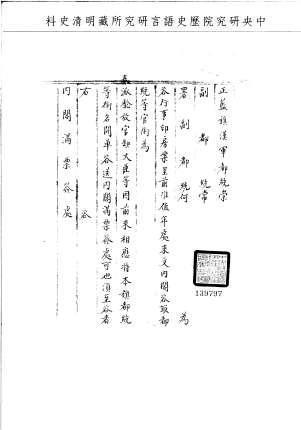 中央研究院歷史語言研究所藏明清史料
正藍旗漢軍都統崇
副都統常
署副都統何 為
咨行事印房案呈前准值年處來文內閣咨取都
統等官銜為
奏派驗放官缺大臣等因前來相應將本旗都統
等銜名開單咨送內閣滿票簽處可也須至咨者
右咨
內閣滿票簽處
139797